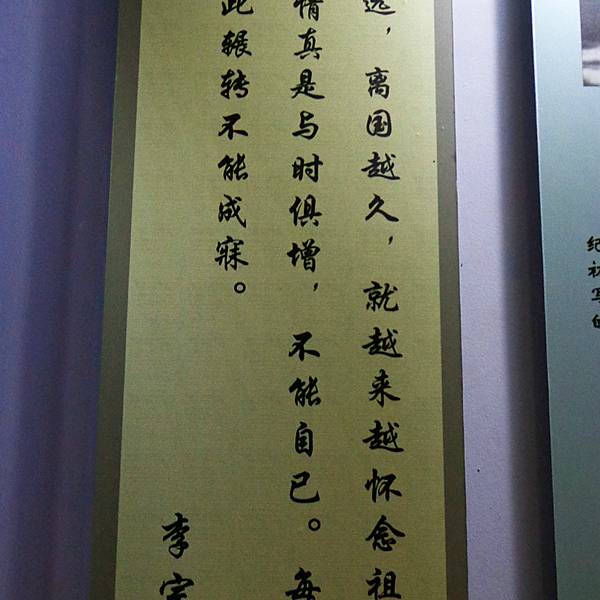 远，离国越久，就越来越怀念祖
情真是与时俱增，不能自已。每
此辗转不能成寐。
李宗
纪
初
写
的